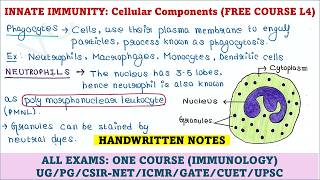 INNATE IMMUNITY: Cellular Components (FREE COURSE L4)
Phagocytes → Cells, use their plasma membrane to engulf
particles, process known as phagocytosis.
Ex: Neutrophils, Macrophages, Monocytes, Dendritic cells
NEUTROPHILS → The nucleus has 3-5 lobes,
hence neutrophil is also known
as polymorphonuclear leukocyte
(PMNL).
→ Granules can be stained by
neutral dyes.
Cytoplasm
Nucleus
Granules
HANDWRITTEN NOTES
ALL EXAMS: ONE COURSE (IMMUNOLOGY)
UG/PG/CSIR-NET/ICMR/GATE/CUET/UPSC